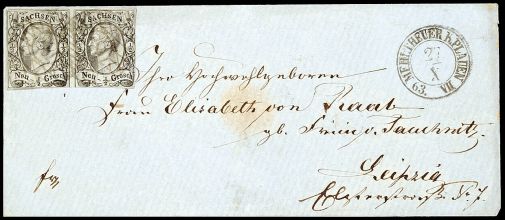 SACHSEN SACHSEN
½ ½ ½ ½
Neu ½ Grosch. Neu ½ Grosch.
MEHLTHEUER b. PLAUEN
27
X
63. VII
Ihro Hochwohlgeboren
Frau Elisabeth von Raab
gb. Freiin v. Tauchnitz,
fr.
Leipzig